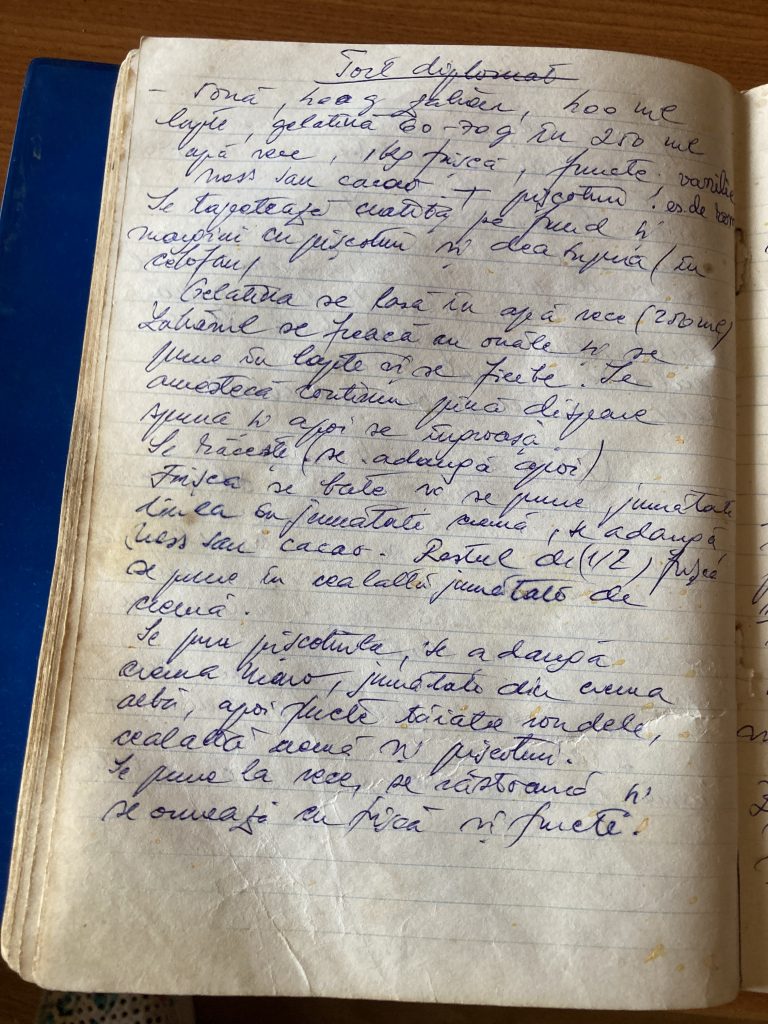 Tort diplomat
- 400 g zahăr, 400 ml
lapte, gelatină 60-70g în 250 ml
apă rece, 1kg frișcă, fructe, vanilie
ness sau cacao + pișcoturi! es. de rom
Se tapetează cratița pe fund și
margini cu pișcoturi și deasupra (în
celofan)
Gelatina se lasă în apă rece (250 ml)
Zahărul se freacă cu ouăle și se
pune în lapte și se fierbe. Se
amestecă continuu pînă dispare
spuma și apoi se îngroașă
Se răcește (se adaugă apoi)
Frișca se bate și se pune jumătate
din ea în jumătate cremă, se adaugă
ness sau cacao. Restul de (1/2) frișcă
se pune în cealaltă jumătate de
cremă.
Se pun pișcoturile, se adaugă
crema maro, jumătate din crema
albă, apoi fructe tăiate rondele,
cealaltă cremă și pișcoturi.
Se pune la rece, se răstoarnă și
se ornează cu frișcă și fructe.